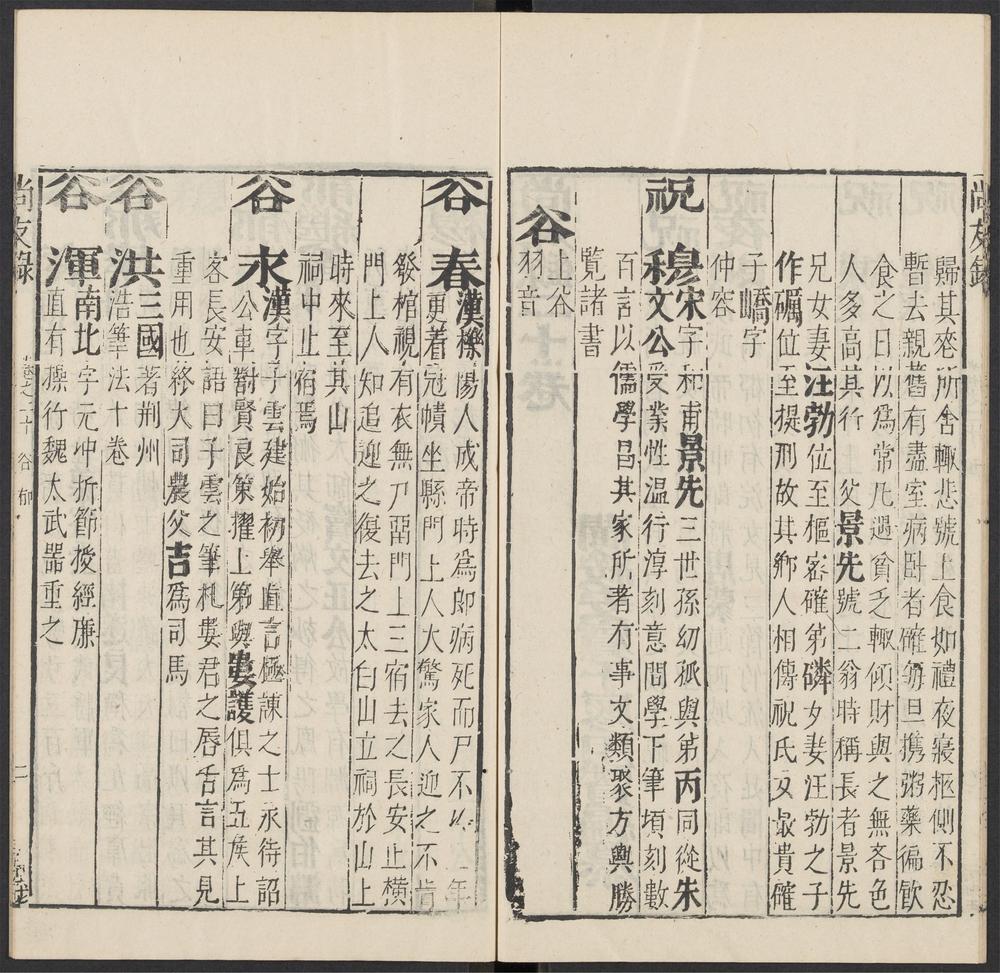 尚友錄
歸其喪所舍輒悲號上食如禮夜寢柩側不忍
暫去親舊有盡室病臥者確每旦携粥藥徧飲
食之日以為常凡遇貧乏輒傾財與之無吝色
人多高其行 父景先號二翁時稱長者景先
兄女妻汪勃位至樞密確弟磷女妻汪勃之子
作礪位至提刑故其鄉人相傳祝氏女最貴確
子嶠字
仲容
祝穆宋字和甫景先三世孫幼孤與弟丙同從朱
文公受業性溫行淳刻意問學下筆頃刻數
百言以儒學昌其家所著有事文類聚方輿勝
覽諸書
谷上谷
羽音
谷春漢櫟陽人成帝時為郎病死而尸不 年
更着冠幘坐縣門上人大驚家人迎之不肯
發棺視有衣無尸留門上三宿去之長安止橫
門上人知追迎之復去之太白山立祠於山上
時來至其山
祠中止宿焉
谷永漢字子雲建始初舉直言極諫之士永待詔
公車對賢良策擢上第與婁護俱為五侯上
客長安語曰子雲之筆札婁君之唇舌言其見
重用也終大司農父吉為司馬
谷洪三國著荆州
浩筆法十卷
谷渾南北字元冲折節授經廉
直有操行魏太武器重之
尚友錄
卷之二十 谷 郁
二